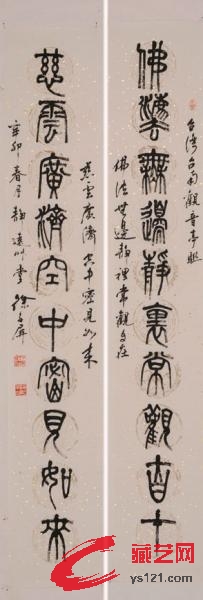 台湾台南觀音亭聯
佛灋無邊靜裏常觀自在
佛法無邊靜裡常觀自在
慈雲廣濟空中密見如來
慈雲廣濟空中密見如來
辛卯春月
藏艺网
ys121.com